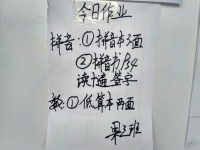 今日作业
拼音:①拼音本3面
②拼音书P34
读十遍 签字
数:①低算本两面
果3班